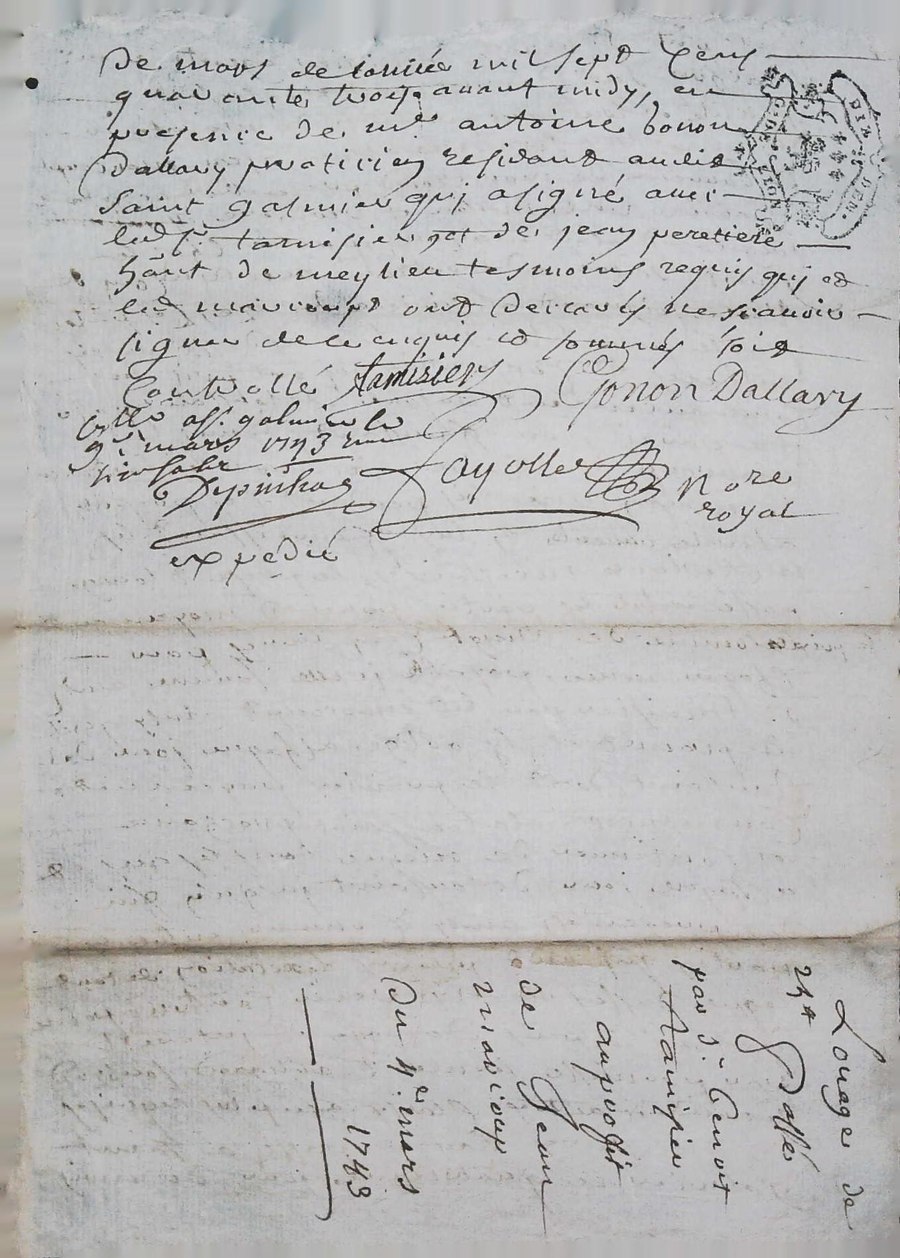 de mars de lannée mil sept cens
quarante trois avant midy, en
presence de me antoine Gonon
Dallary praticien residant audit
Saint galmier qui a signé avec
led sr. tamisier et de jean peretiere
hãnt de meylieu tesmoins requis qui et
led marcoup ont declarés ne scavoir
signer de ce enquis et sommés soit
Controllé
tamisier
Gonon Dallary
Cllé a St. galmier le
9e mars 1743
Depinhac
fayolle Nore
royal
expédié
Louage de
passé
par Sr. Benoit
tamisier
au proffit
de Jean
marcoup
Du 4e. mars
1743